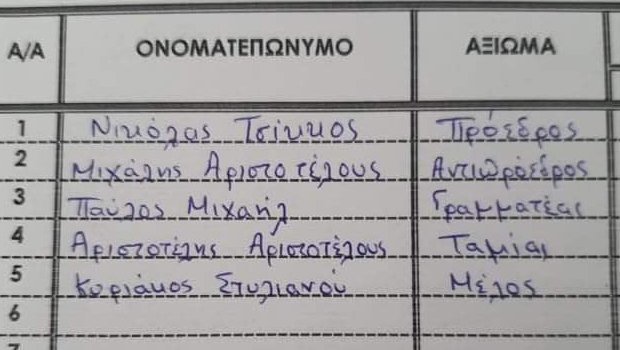 Α/Α ΟΝΟΜΑΤΕΠΩΝΥΜΟ ΑΞΙΩΜΑ
1 Νικόλας Τσίκκος Πρόεδρος
2 Μιχάλης Αριστοτέλους Αντιπρόεδρος
3 Παύλος Μιχαήλ Γραμματέας
4 Αριστοτέλης Αριστοτέλους Ταμίας
5 Κυριάκος Στυλιανού Μέλος
6
7